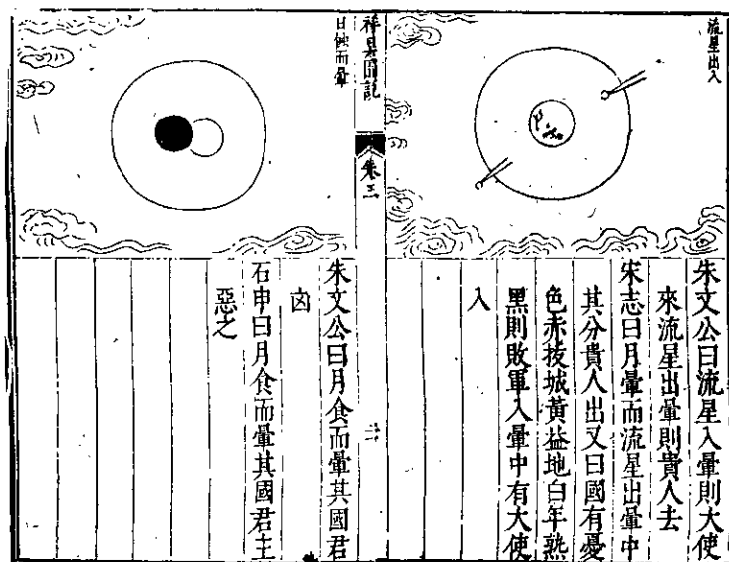 流星出入
朱文公曰流星入暈則大使
來流星出暈則貴人去
宋志曰月暈而流星出暈中
其分貴人出又曰國有憂
色赤拔城黃益地白年熟
黑則敗軍入暈中有大使
入
祥異圖說
卷三
二
日蝕而暈
朱文公曰月食而暈其國君
凶
石申曰月食而暈其國君主
惡之